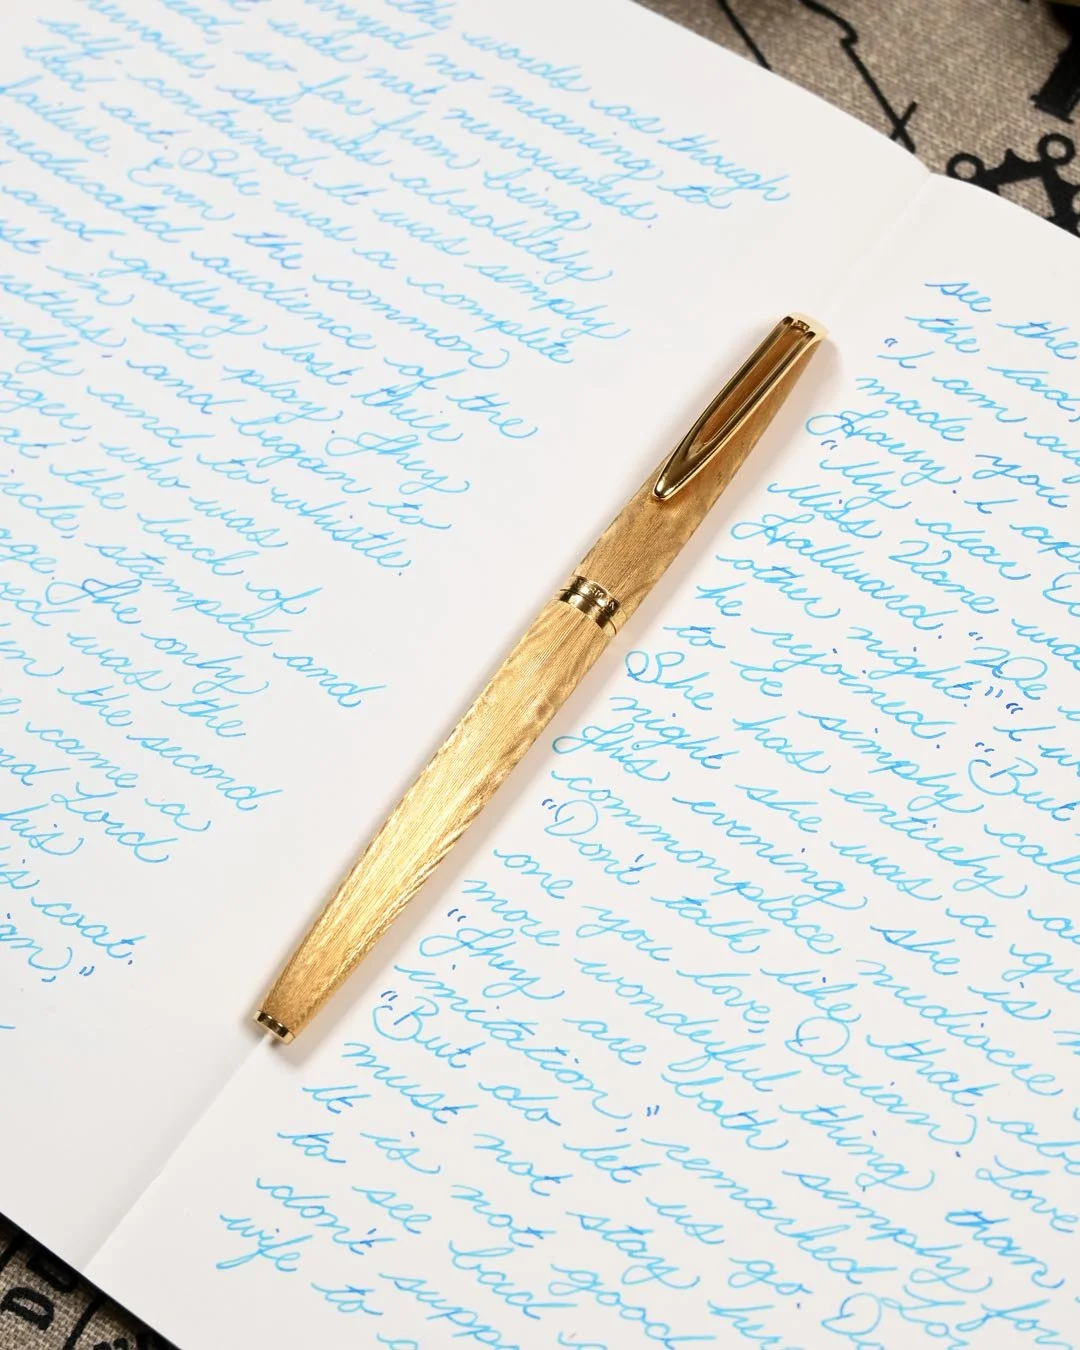 the words as though
conveyed no meaning to
was not nervousness.
so far from being
nervous, she was absolutely
self-contained. It was simply
bad art. She was a complete
failure. Even the common
uneducated audience of the
and gallery lost their
in the play. They
and began to
and to whistle.
who was
at the back of
stamped and
The only
was the
the second
came a
and Lord
his
coat.
see the
the lad,
"I am
made you
Harry. I
"My dear
Miss Vane
Hallward. "We
other night." "I
he rejoined. "But
to be simply
She has entirely
night she was a
This evening she is
commonplace mediocre
"Don't talk like that
one you love, Dorian. Love
more wonderful thing than
"They are both simply
imitation," remarked
"But do let us go.
must not stay
It is not good
to see bad
don't
wife to